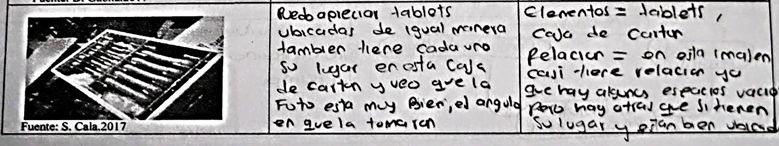 Fuente: S. Cala.2017
Puedo apreciar tablets
ubicadas de igual manera
tambien tiene cada uno
su lugar en esta caja
de carton y veo que la
Foto esta muy Bien, el angulo
en que la tomaron
Elementos = tablets,
Caja de carton
Relacion = en esta imagen
casi tiene relacion ya
que hay algunos espacios vacio
pero hay otras que si tienen
su lugar y estan bien ubicad